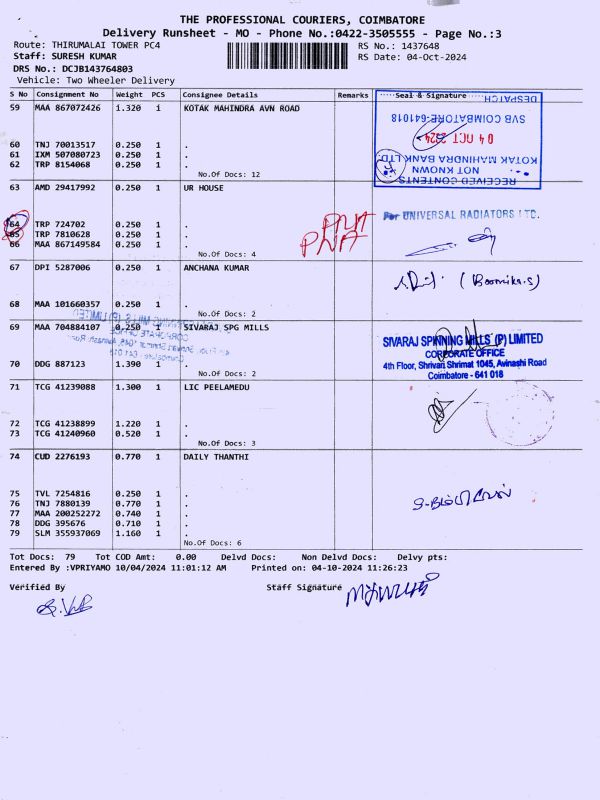 THE PROFESSIONAL COURIERS, COIMBATORE
Delivery Runsheet - MO - Phone No.:0422-3505555 - Page No.:3
Route: THIRUMALAI TOWER PC4
RS No.: 1437648
Staff: SURESH KUMAR
RS Date: 04-Oct-2024
DRS No.: DCJB143764803
Vehicle: Two Wheeler Delivery
S No Consignment No Weight PCS Consignee Details Remarks Seal & Signature
59 MAA 867072426 1.320 1 KOTAK MAHINDRA AVN ROAD
60 TNJ 70013517 0.250 1 .
61 IXM 507080723 0.250 1 .
62 TRP 8154068 0.250 1 .
No.Of Docs: 12
DESPATCH
SVB COIMBATORE-641018
04 OCT 2024
KOTAK MAHINDRA BANK LTD
NOT KNOWN
RECEIVED CONTENTS
63 AMD 29417992 0.250 1 UR HOUSE
64 TRP 724702 0.250 1 .
65 TRP 7810628 0.250 1 .
66 MAA 867149584 0.250 1 .
No.Of Docs: 4
PNA
PNA
For UNIVERSAL RADIATORS LTD.
67 DPI 5287006 0.250 1 ANCHANA KUMAR
(Boomika.S)
68 MAA 101660357 0.250 1 .
No.Of Docs: 2
69 MAA 704884107 0.250 1 SIVARAJ SPG MILLS
70 DDG 887123 1.390 1 .
No.Of Docs: 2
SIVARAJ SPINNING MILLS (P) LIMITED
CORPORATE OFFICE
4th Floor, Shrivari Shrimat 1045, Avinashi Road
Coimbatore - 641 018
71 TCG 41239088 1.300 1 LIC PEELAMEDU
72 TCG 41238899 1.220 1 .
73 TCG 41240960 0.520 1 .
No.Of Docs: 3
74 CUD 2276193 0.770 1 DAILY THANTHI
75 TVL 7254816 0.250 1 .
76 TNJ 7880139 0.770 1 .
77 MAA 200252272 0.740 1 .
78 DDG 395676 0.710 1 .
79 SLM 355937069 1.160 1 .
No.Of Docs: 6
Tot Docs: 79 Tot COD Amt: 0.00 Delvd Docs: Non Delvd Docs: Delvy pts:
Entered By :VPRIYAMO 10/04/2024 11:01:12 AM Printed on: 04-10-2024 11:26:23
Verified By
Staff Signature